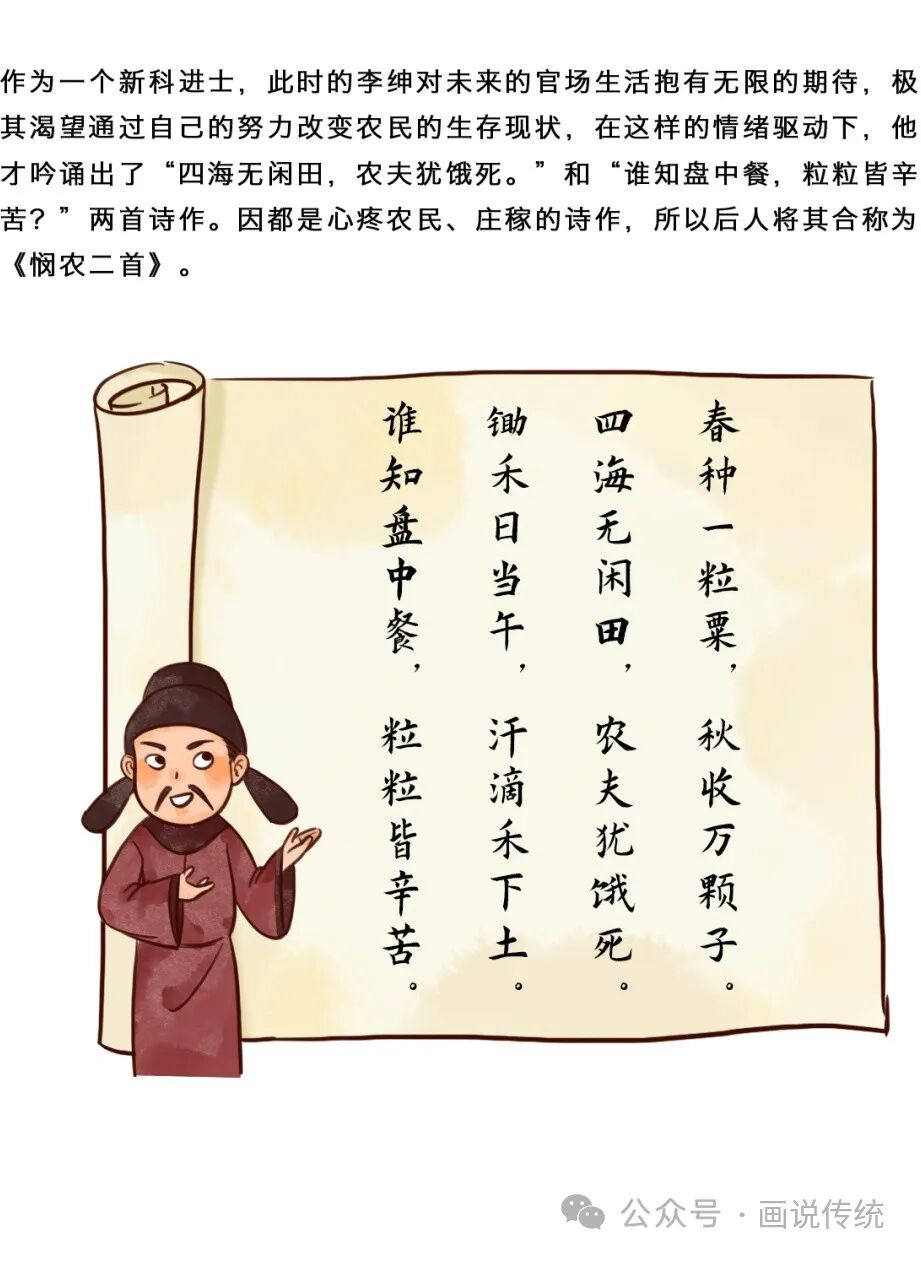 作为一个新科进士，此时的李绅对未来的官场生活抱有无限的期待，极
其渴望通过自己的努力改变农民的生存现状，在这样的情绪驱动下，他
才吟诵出了“四海无闲田，农夫犹饿死。”和“谁知盘中餐，粒粒皆辛
苦？”两首诗作。因都是心疼农民、庄稼的诗作，所以后人将其合称为
《悯农二首》。
春种一粒粟，秋收万颗子。
四海无闲田，农夫犹饿死。
锄禾日当午，汗滴禾下土。
谁知盘中餐，粒粒皆辛苦。
公众号·画说传统